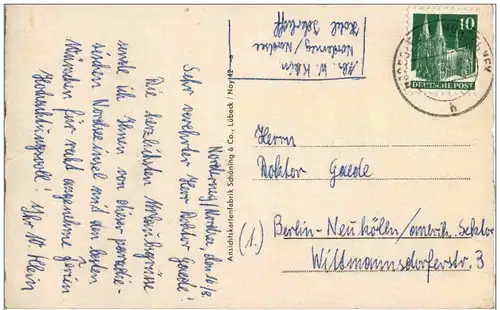 Norderney/Nordsee, den 16/8.
Sehr verehrter Herr Doktor Gaede!
Die herzlichsten Urlaubsgrüsse
sende ich Ihnen von dieser paradie-
sischen Nordseeinsel mit den besten
Wünschen für recht angenehme Ferien
Hochachtungsvoll! Ihr W Klein
Ansichtskartenfabrik Schöning & Co., Lübeck / Noy 42
Abs. W. Klein
Norderney/Nordsee
Hotel
10
DEUTSCHE POST
Herrn
Doktor Gaede
(1.) Berlin-Neukölln/amerik. Sektor
Wittmannsdorferstr. 3